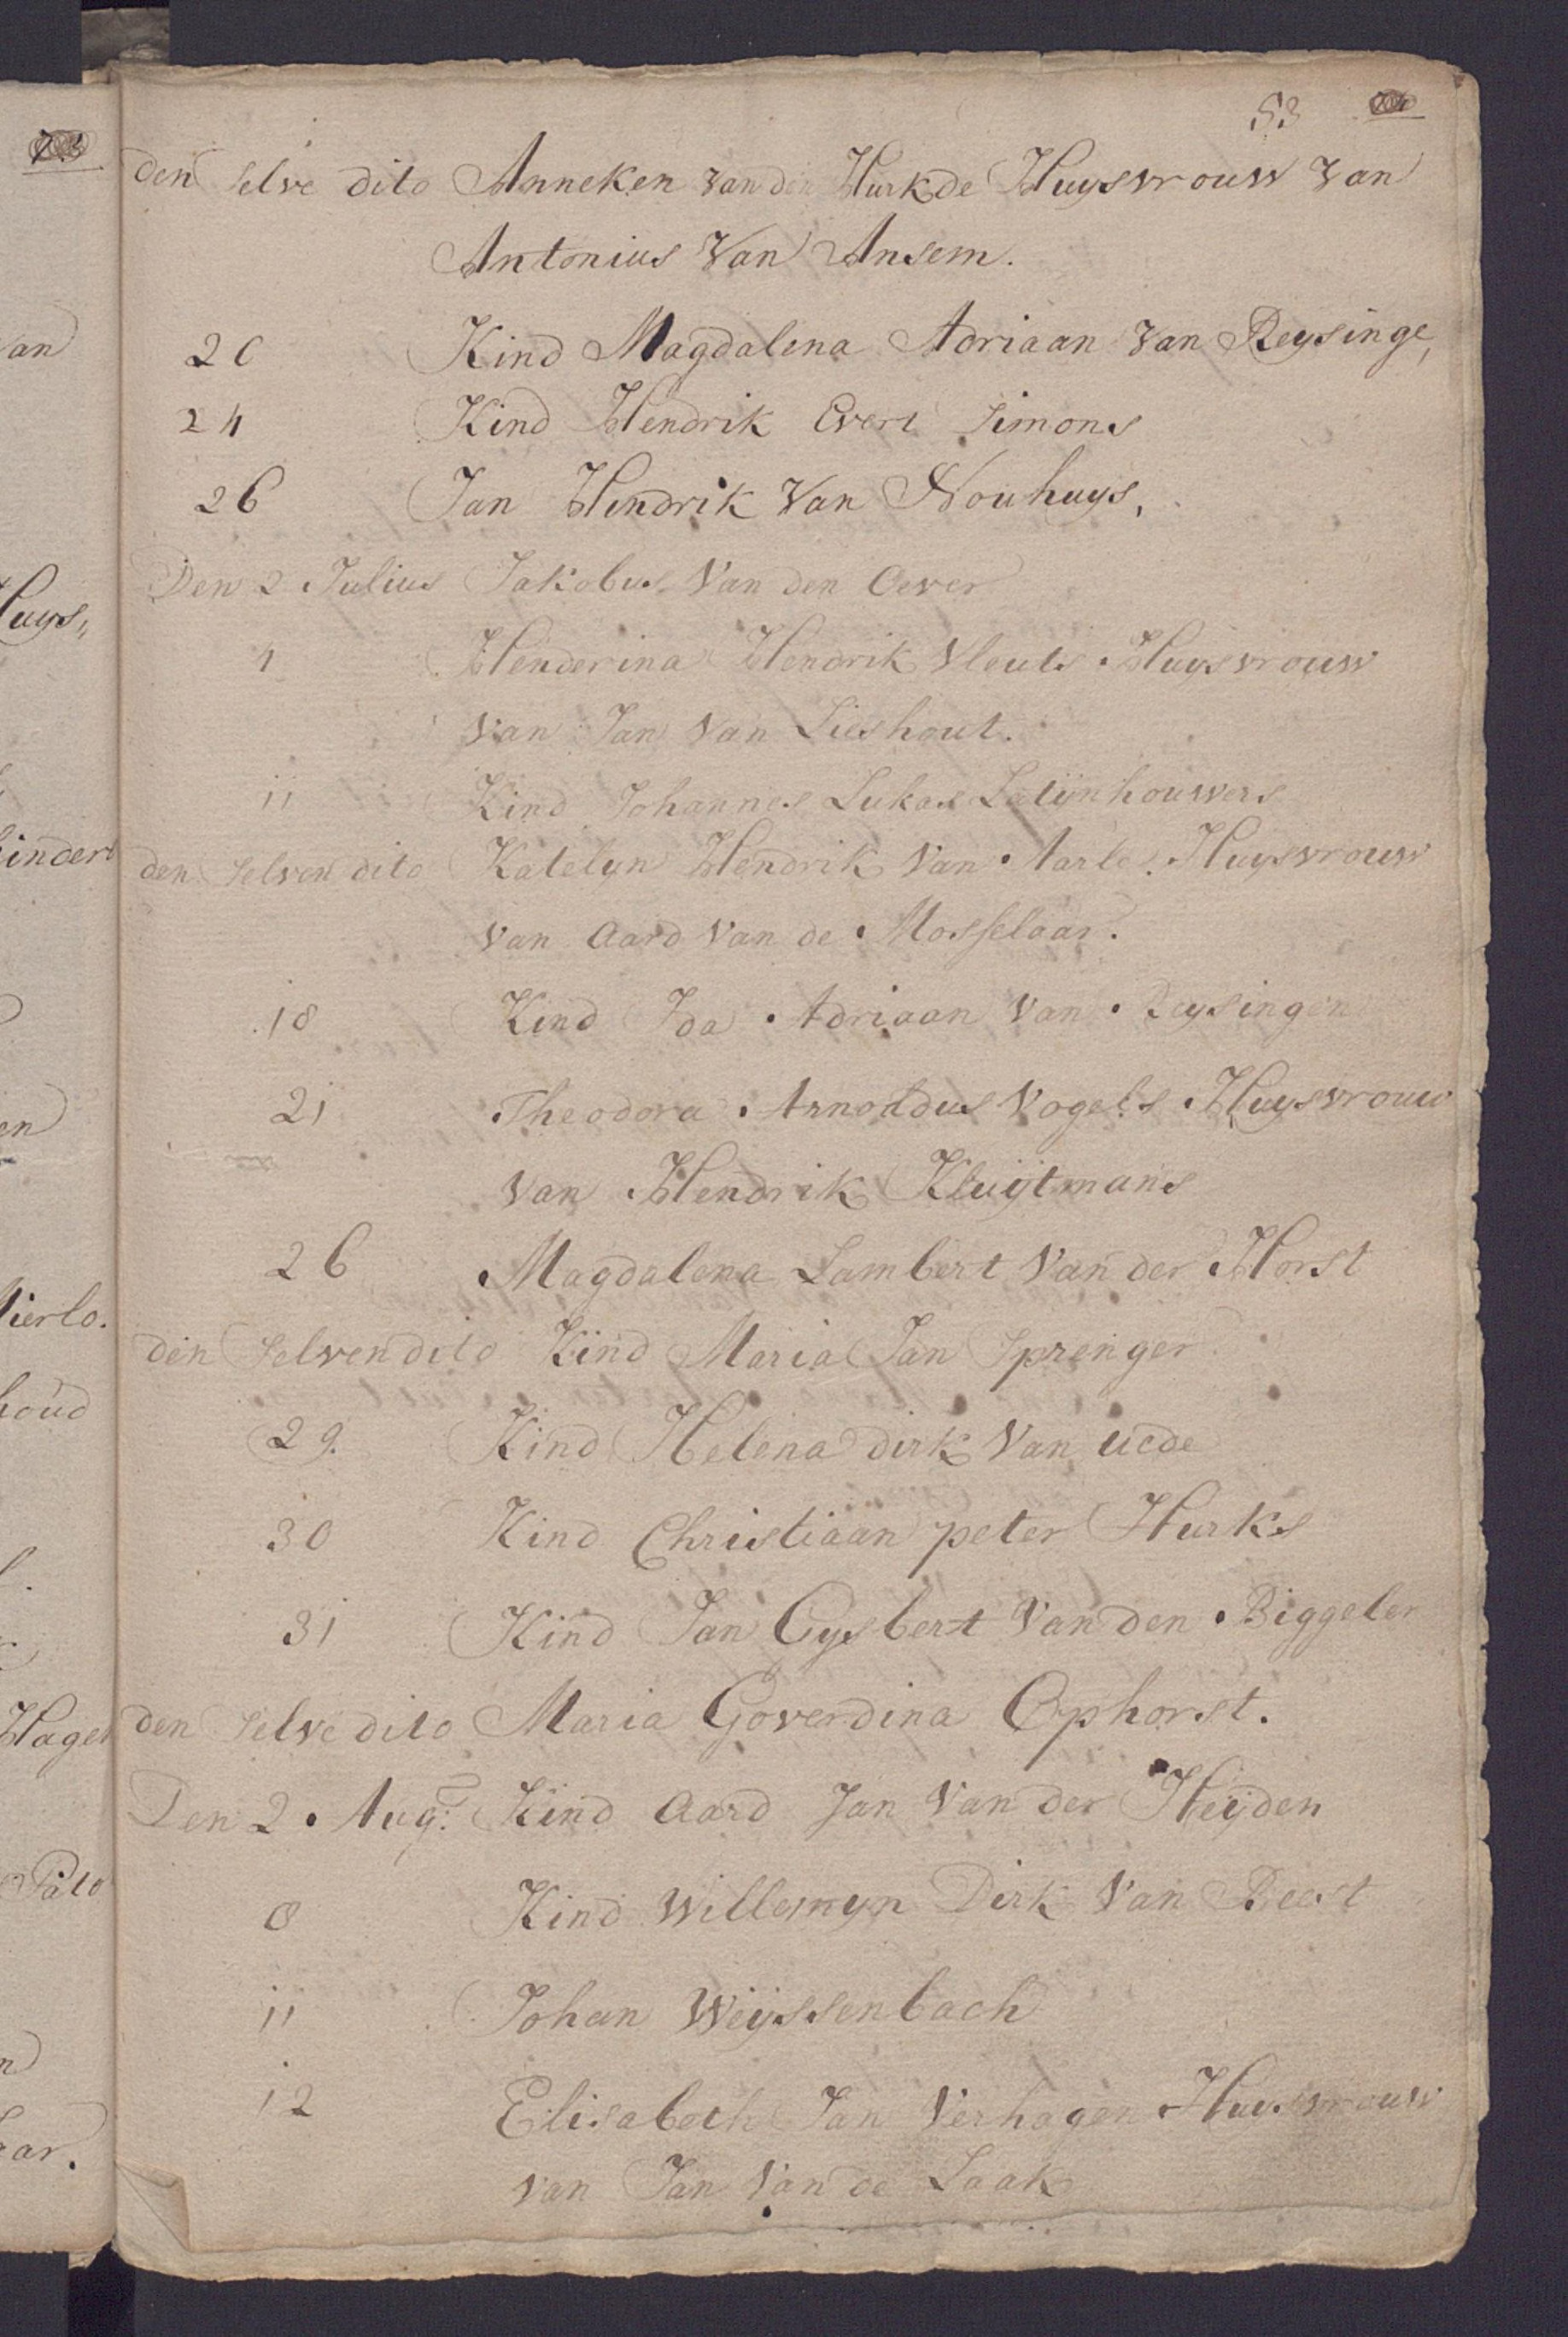 53
den selve dito Anneken van den Hurk de Huysvrouw van
Antonius Van Ansem.
20 Kind Magdalena Adriaan Van Reysinge,
24 Kind Hendrik Evert Simons
26 Jan Hendrik Van Nouhuys,
Den 2 Julius Jakobus Van den Oever
4 Henderina Hendrik Vleuts Huysvrouw
Van Jan Van Lieshout.
11 Kind Johannes Lukas Latijnhouwers
den selven dito Katelyn Hendrik Van Aarle. Huysvrouw
Van Aard Van de Mosselaar.
18 Kind Ida Adriaan Van Reysingen
21 Theodora Arnoldus Vogels Huysvrouw
Van Hendrik Kluijtmans
26 Magdalena Lambert Van der Horst
den selven dito Kind Maria Jan Sprenger
29. Kind Helena dirk Van Uede
30 Kind Christiaan peter Hurks
31 Kind Jan Gysbert Van den Biggeler
den selve dito Maria Goverdina Ophorst.
Den 2 Aug: Kind Aard Jan Van der Heijden
8 Kind Willemyn Dirk Van Beest
11 Johan Weyssenbach
12 Elisabeth Jan Verhagen Huysvrouw
Van Jan Van de Laak
73
van
Huys,,
kindert
en
Mierlo.
houd
Hagen
Pato
aar.